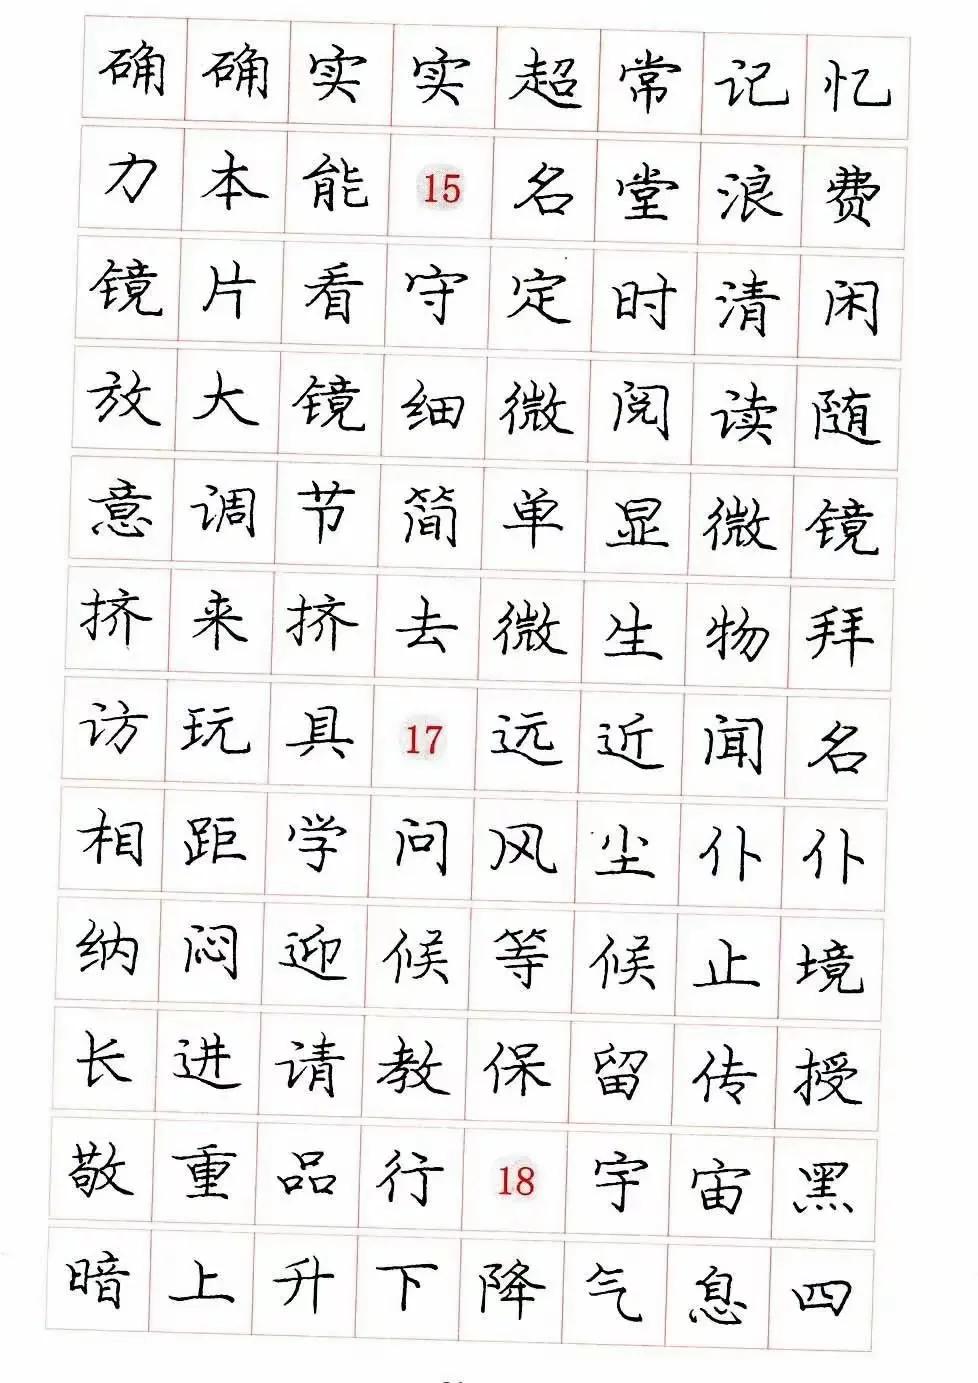 确确实实超常记忆
力本能15名堂浪费
镜片看守定时清闲
放大镜细微阅读随
意调节简单显微镜
挤来挤去微生物拜
访玩具17远近闻名
相距学问风尘仆仆
纳闷迎候等候止境
长进请教保留传授
敬重品行18宇宙黑
暗上升下降气息四